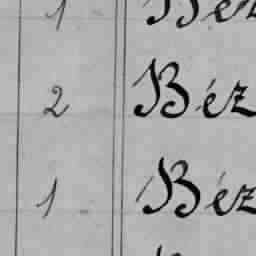 1 Béz
2 Béz
1 Béz